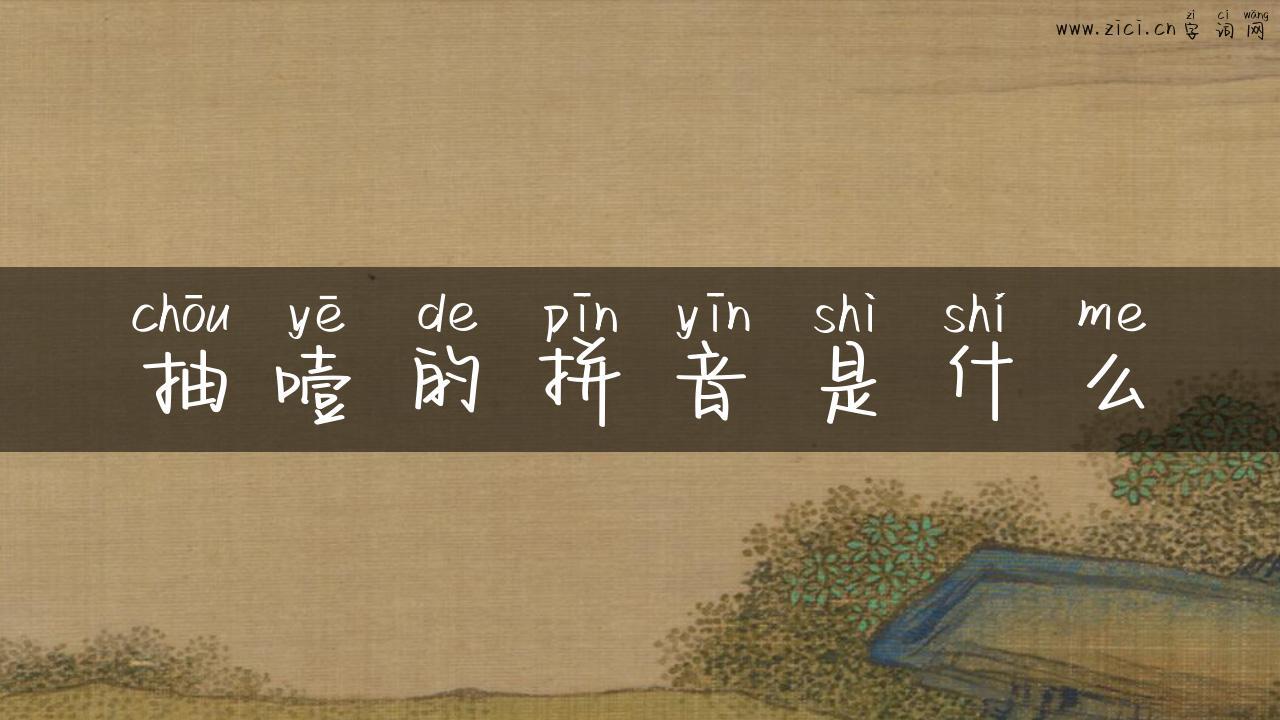 zì cí wǎng
www.zici.cn 字词网
chōu yē de pīn yīn shì shí me
抽噎的拼音是什么